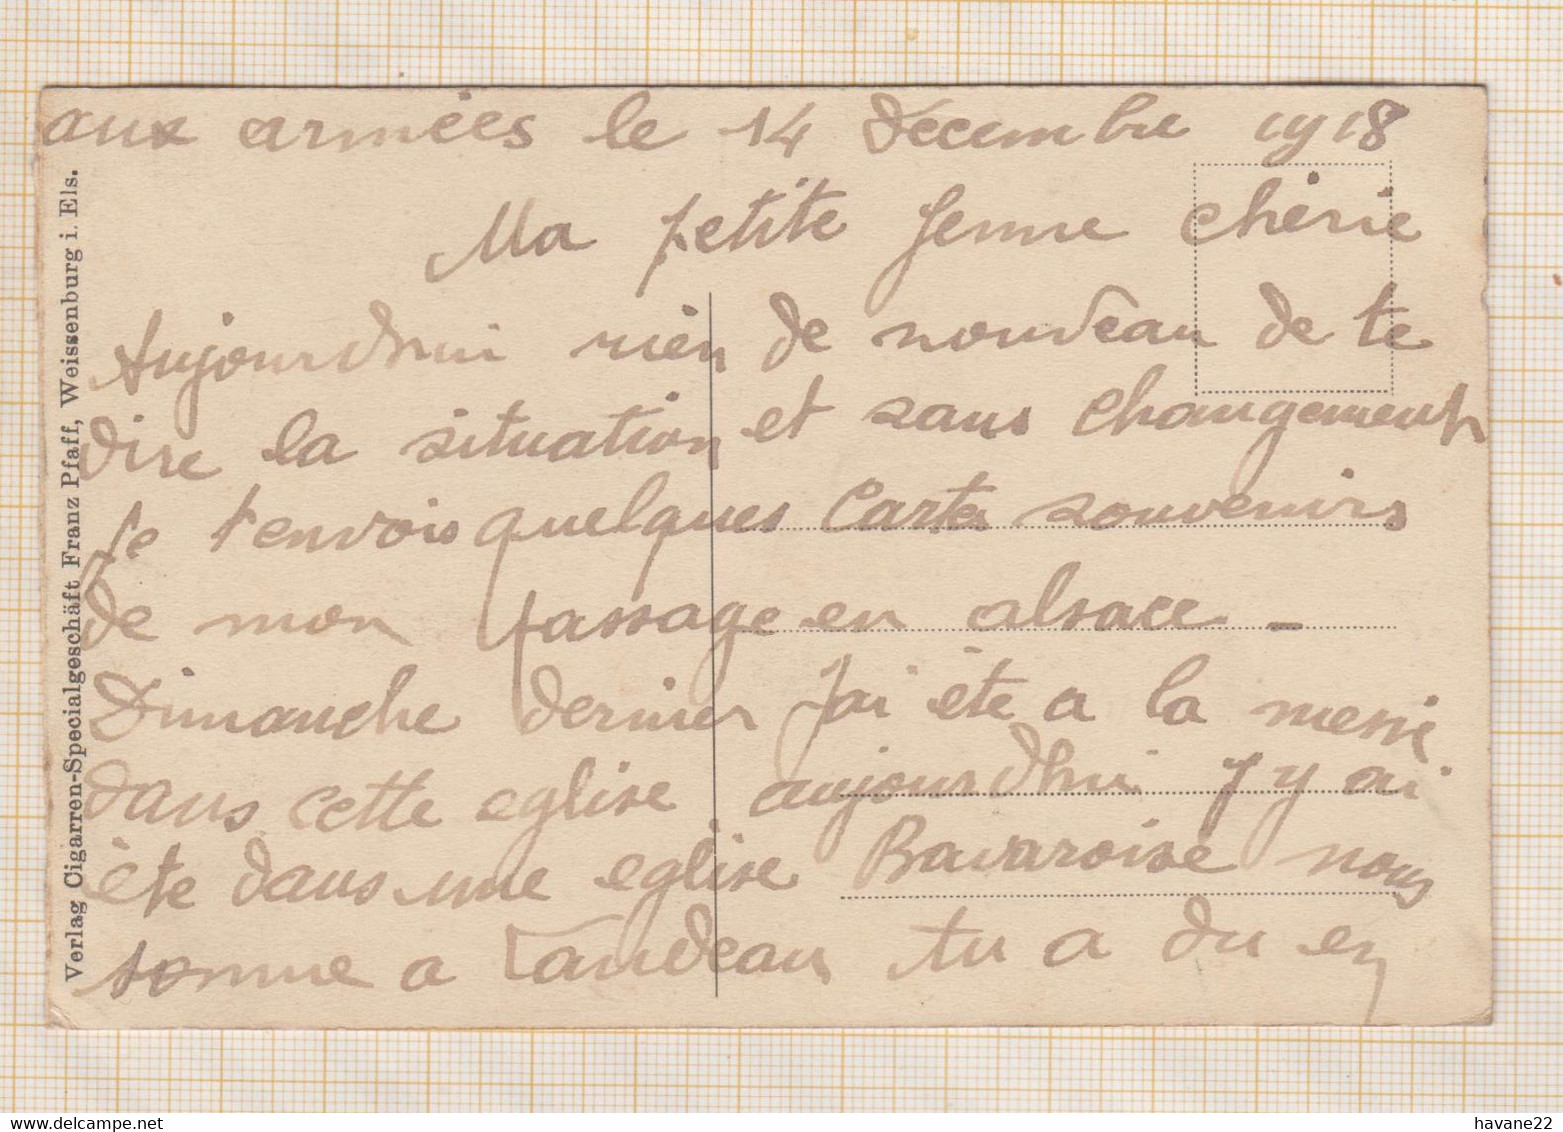 aux armées le 14 Décembre 1918
Ma petite femme chérie
Aujourdhui rien de nouveau de te
dire la situation et sans changement
je t'envois quelques Cartes souvenirs
de mon passage en alsace –
Dimanche dernier j'ai éte a la messe
dans cette eglise aujourdhui j'y ai
éte dans une eglise Bavaroise nous
somme a Landeau tu a du en
Verlag Cigarren-Specialgeschäft Franz Pfaff, Weissenburg i. Els.
havane22